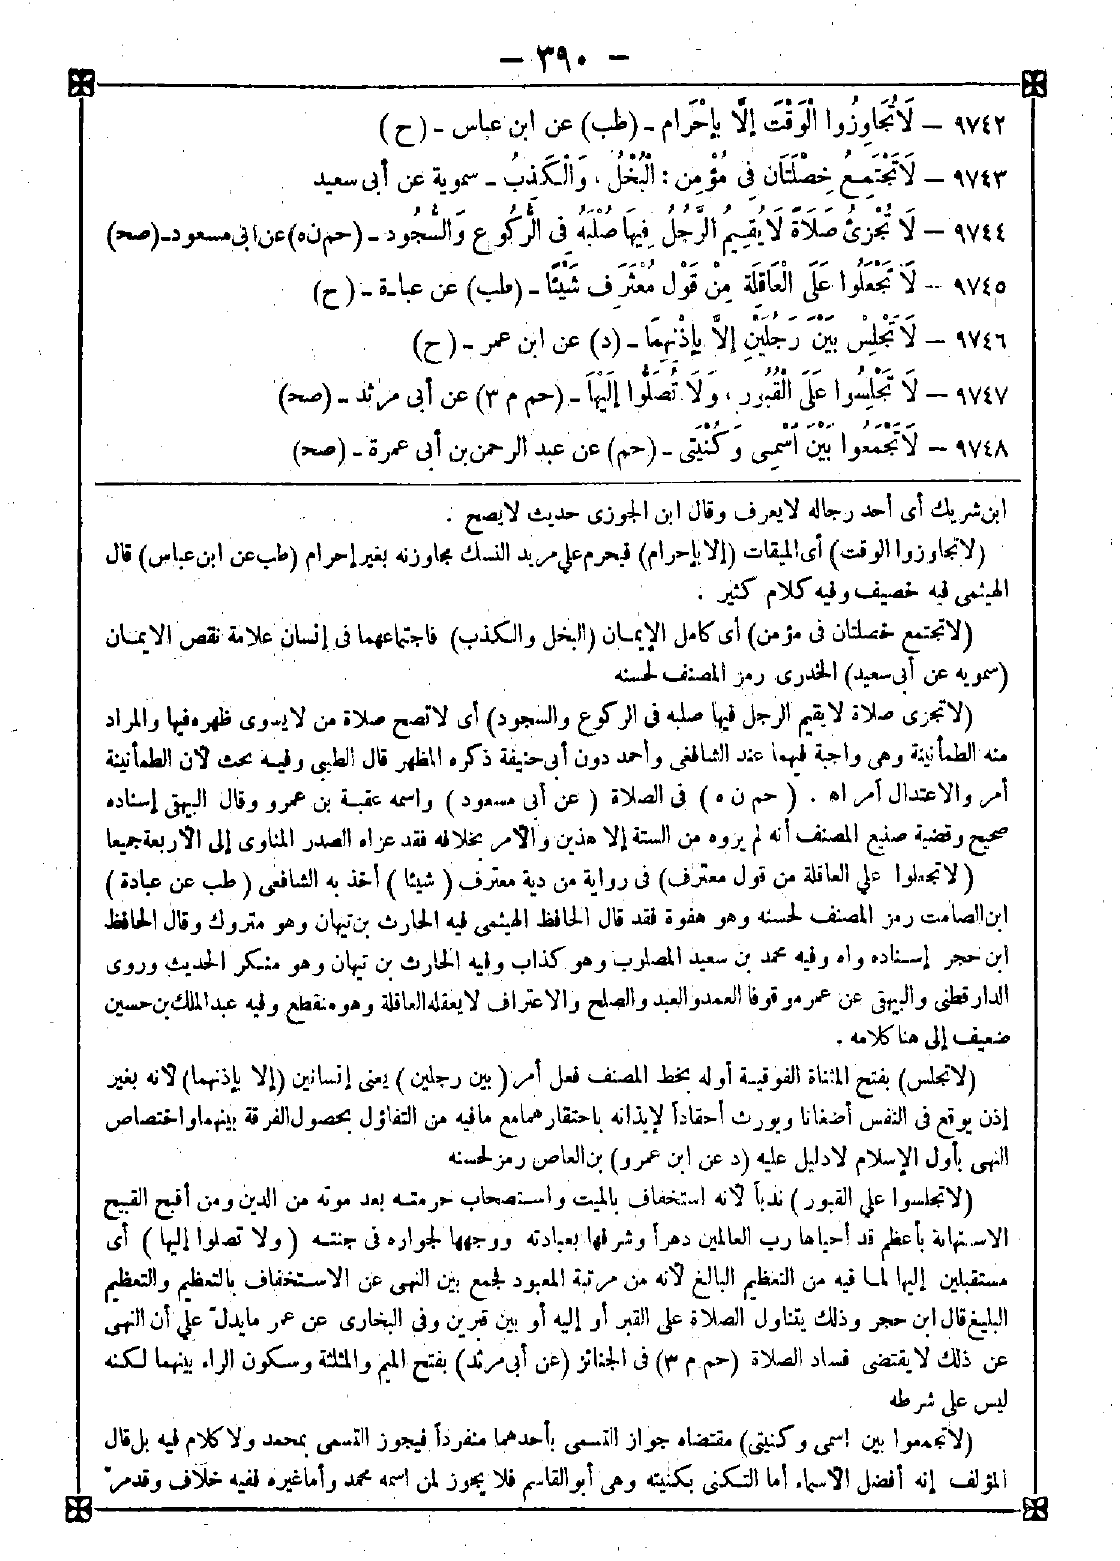 - ٣٩٠ -
٩٧٤٢ - لَا تُجَاوِزُوا الْوَقْتَ إِلَّا بِإِحْرَامٍ - (طب) عن ابن عباس - (ح)
٩٧٤٣ - لَا تَجْتَمِعُ خِصْلَتَانِ فِى مُؤْمِنٍ : الْبُخْلُ ، وَالْكَذِبُ - سموية عن أبى سعيد
٩٧٤٤ - لَا تُجْزِئُ صَلَاةٌ لَا يُقِيمُ الرَّجُلُ فِيهَا صُلْبَهُ فِى الرُّكُوعِ وَالسُّجُودِ - (حم ن ه) عن ابى مسعود - (صح)
٩٧٤٥ - لَا تَجْعَلُوا عَلَى الْعَاقِلَةِ مِنْ قَوْلِ مُعْتَرِفٍ شَيْئًا - (طب) عن عبادة - (ح)
٩٧٤٦ - لَا تَجْلِسْ بَيْنَ رَجُلَيْنِ إِلَّا بِإِذْنِهِمَا - (د) عن ابن عمر - (ح)
٩٧٤٧ - لَا تَجْلِسُوا عَلَى الْقُبُورِ ، وَلَا تُصَلُّوا إِلَيْهَا - (حم م ٣) عن أبى مرثد - (صح)
٩٧٤٨ - لَا تَجْمَعُوا بَيْنَ اسْمِى وَكُنْيَتِى - (حم) عن عبد الرحمن بن أبى عمرة - (صح)
ابن شريك أى أحد رجاله لايعرف وقال ابن الجوزى حديث لايصح .
(لاتجاوزوا الوقت) أى الميقات (إلا بإحرام) فيحرم على مريد النسك مجاوزته بغير إحرام (طب عن ابن عباس) قال
الهيثمى فيه خصيف وفيه كلام كثير .
(لاتجتمع خصلتان فى مؤمن) أى كامل الإيمان (البخل والكذب) فاجتماعهما فى إنسان علامة نقص الايمان
(سمويه عن أبى سعيد) الخدرى رمز المصنف لحسنه
(لاتجزى صلاة لايقيم الرجل فيها صلبه فى الركوع والسجود) أى لاتصح صلاة من لايسوى ظهره فيها والمراد
منه الطمأنينة وهى واجبة فيهما عند الشافعى وأحمد دون أبى حنيفة ذكره المظهر قال الطيبى وفيه بحث لأن الطمأنينة
أمر والاعتدال أمر اه . ( حم ن ه ) فى الصلاة ( عن أبى مسعود ) واسمه عقبة بن عمرو وقال البيهقى إسناده
صحيح وقضية صنيع المصنف أنه لم يروه من الستة إلا هذين والأمر بخلافه فقد عزاه الصدر المناوى إلى الأربعة جميعا
( لاتجعلوا على العاقلة من قول معترف) فى رواية من دية معترف ( شيئا ) أخذ به الشافعى ( طب عن عبادة )
ابن الصامت رمز المصنف لحسنه وهو هفوة فقد قال الحافظ الهيثمى فيه الحارث بن تيهان وهو متروك وقال الحافظ
ابن حجر إسناده واه وفيه محمد بن سعيد المصلوب وهو كذاب وفيه الحارث بن تيهان وهو منكر الحديث وروى
الدارقطنى والبيهقى عن عمر موقوفا العمد والعبد والصلح والاعتراف لا يعقله العاقلة وهو منقطع وفيه عبد الملك بن حسين
ضعيف إلى هنا كلامه .
(لاتجلس) بفتح المثناة الفوقية أوله بخط المصنف فعل أمر ( بين رجلين ) يعنى إنسانين (إلا بإذنهما) لأنه بغير
إذن يوقع فى النفس أضغانا ويورث أحقاداً لإيذانه باحتقارهما مع مافيه من التفاؤل بحصول الفرقة بينهما واختصاص
النهى بأول الإسلام لادليل عليه (د عن ابن عمرو) بن العاص رمز لحسنه
(لاتجلسوا على القبور ) ندباً لأنه استخفاف بالميت واستصحاب حرمته بعد موته من الدين ومن أقبح القبيح
الاستهانة بأعظم قد أحياها رب العالمين دهراً وشرفها بعبادته ووجهها لجواره فى جنته ( ولا تصلوا إليها ) أى
مستقبلين إليها لما فيه من التعظيم البالغ لأنه من مرتبة المعبود فجمع بين النهى عن الاستخفاف بالتعظيم والتعظيم
البليغ قال ابن حجر وذلك يتناول الصلاة على القبر أو إليه أو بين قبرين وفى البخارى عن عمر مايدلّ على أن النهى
عن ذلك لايقتضى فساد الصلاة (حم م ٣) فى الجنائز (عن أبى مرثد) بفتح الميم والمثلثة وسكون الراء بينهما لكنه
ليس على شرطه
(لاتجمعوا بين اسمى وكنيتى) مقتضاه جواز التسمى بأحدهما منفرداً فيجوز التسمى بمحمد ولا كلام فيه بل قال
المؤلف إنه أفضل الأسماء أما التكنى بكنيته وهى أبو القاسم فلا يجوز لمن اسمه محمد وأما غيره ففيه خلاف وقد مرّ